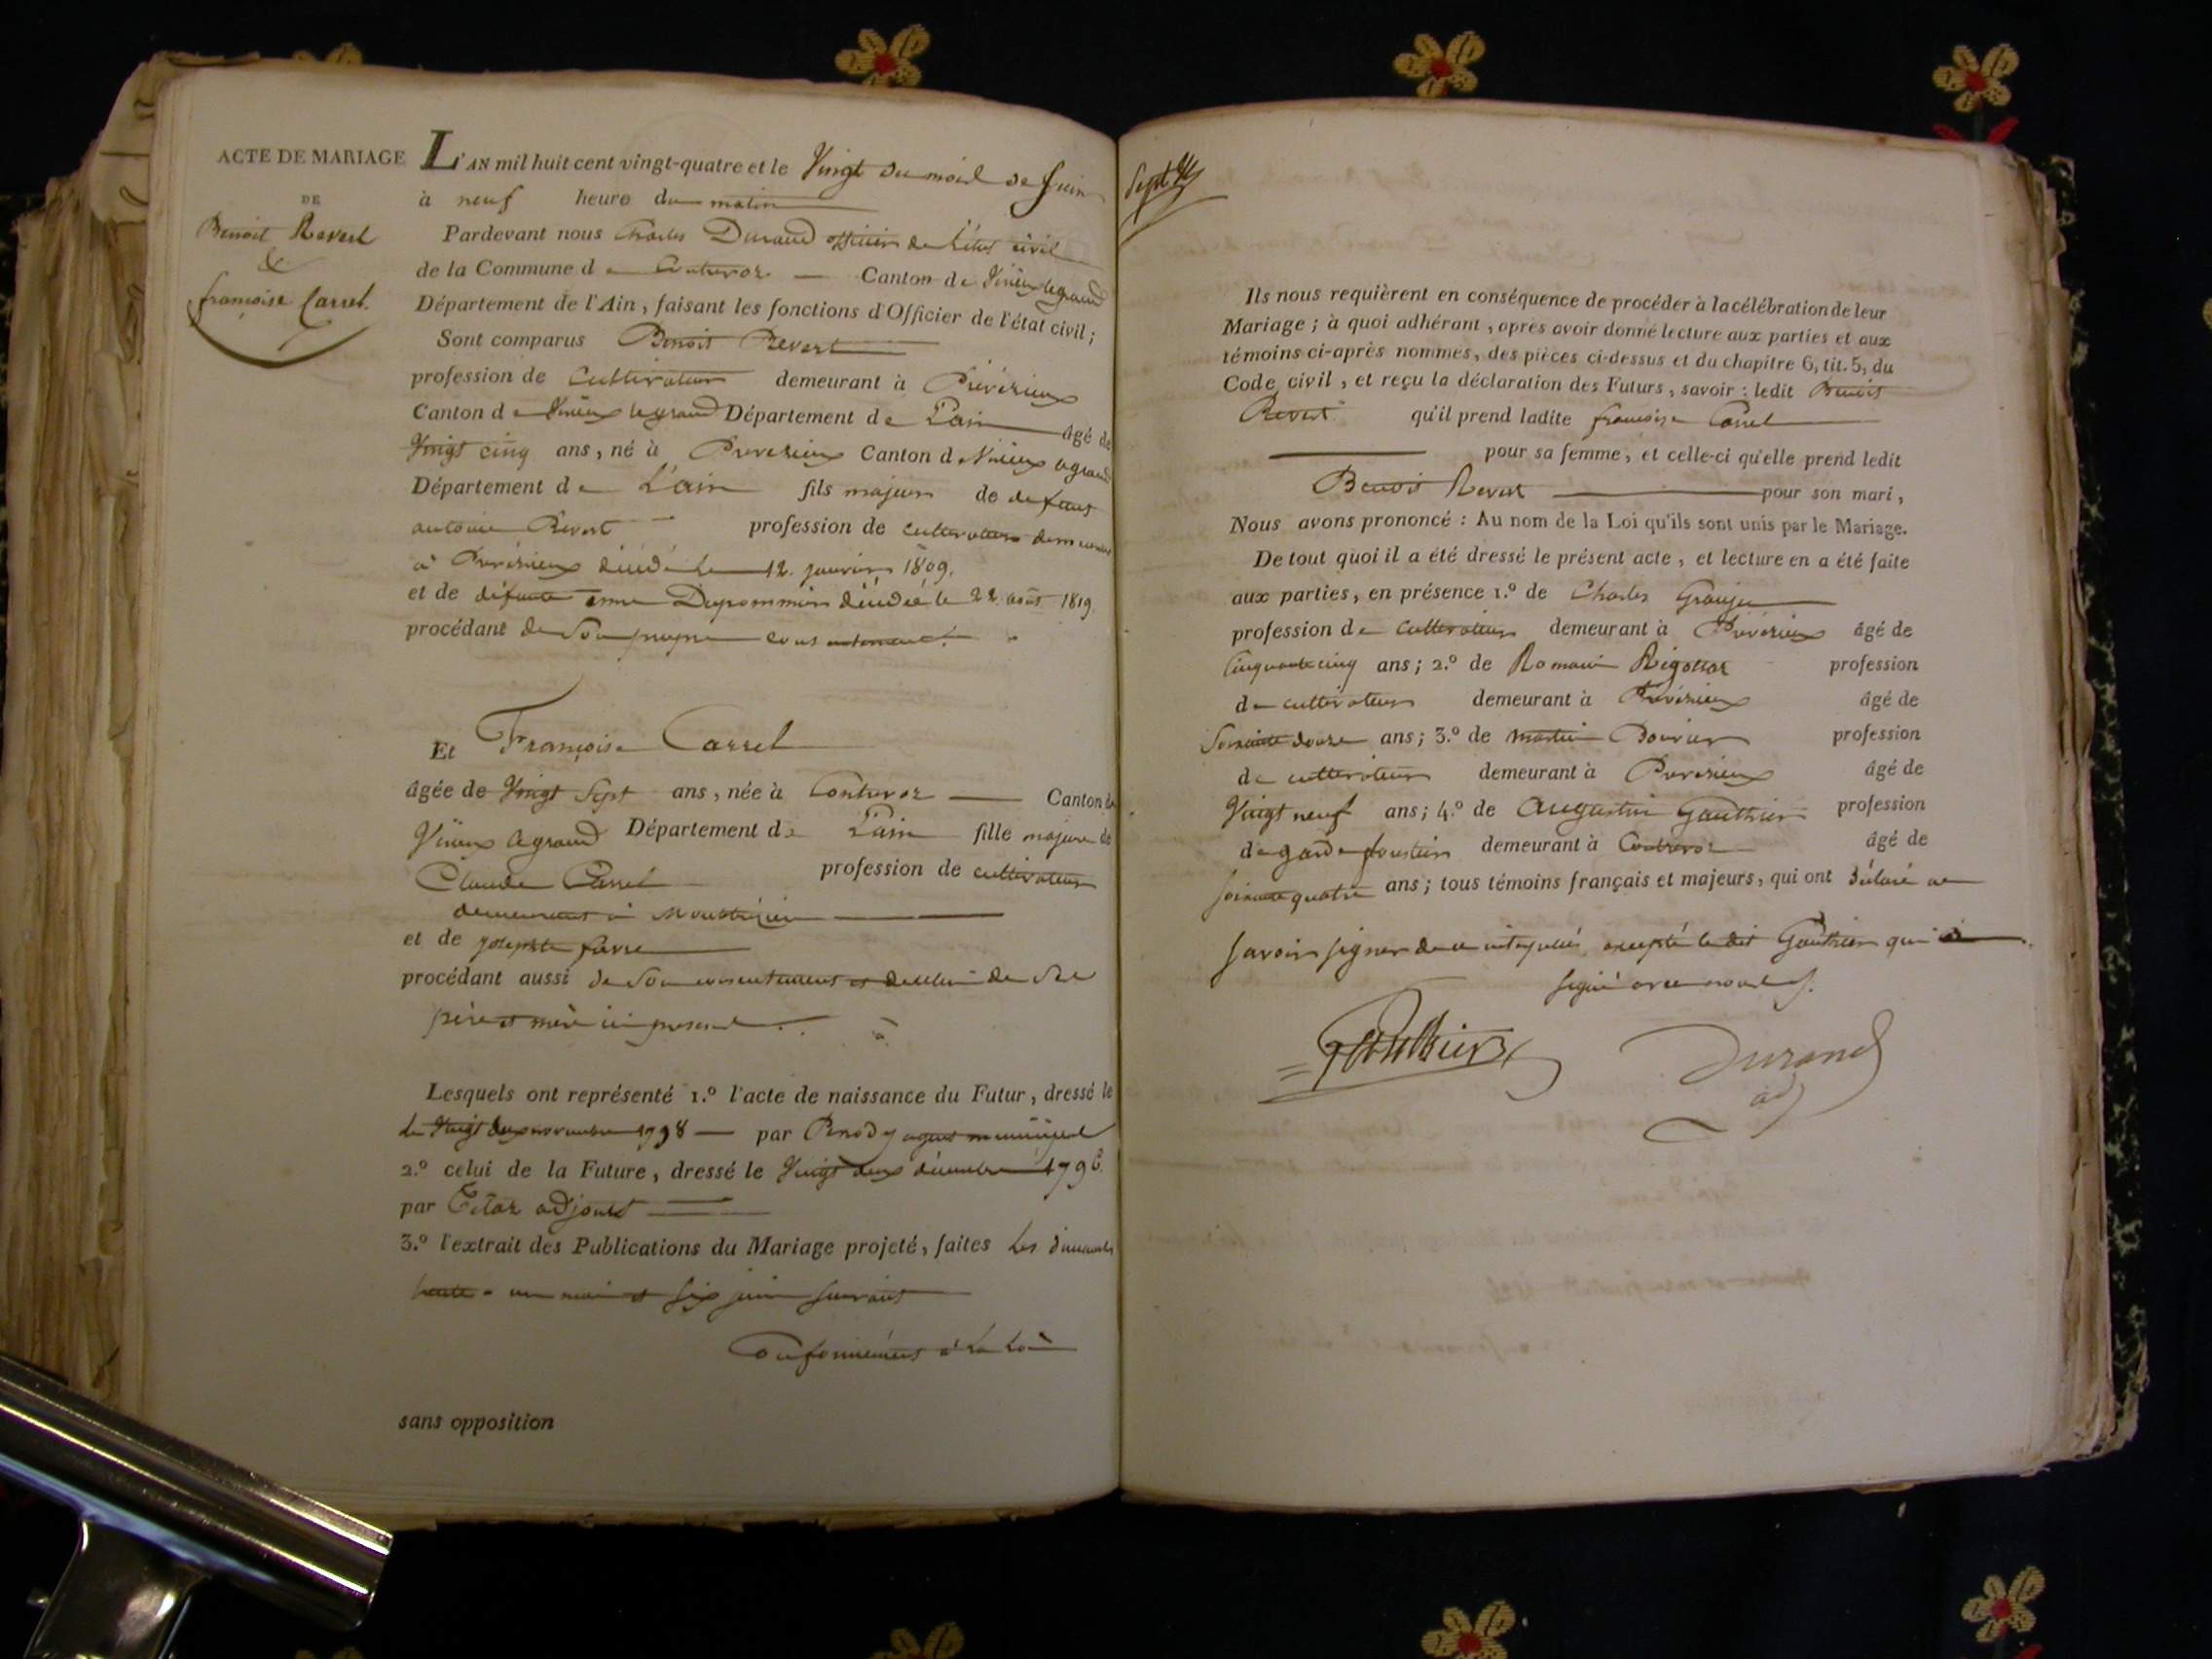 ACTE DE MARIAGE
DE
Benoit Revert
&
françoise Carrel.
L'AN mil huit cent vingt-quatre et le Vingt du mois de Juin
à neuf heure du matin
Pardevant nous Charles Durand officier de l'état civil
de la Commune de Contrevoz Canton de Virieu legrand
Département de l'Ain, faisant les fonctions d'Officier de l'état civil;
Sont comparus Benoit Revert
profession de Cultivateur demeurant à Préveizieux
Canton de Virieu legrand Département de L'ain âgé de
Vingt cinq ans, né à Canton d Virieux legrand
Département de L'ain fils majeur de defunt
antoine Revert profession de cultivateur demeurant
à décédé le 12. janvier 1809.
et de défunte anne Dupommier décédée le 22 août 1819.
procédant de Son propre
Et Françoise Carrel
âgée de Vingt Sept ans, née à Contrevoz Canton de
Virieux legrand Département de L'ain fille majeure de
Claude Carrel profession de cultivateur
demeurant à
et de josephte favre
procédant aussi de Son consentement et de celui de Ses
père et mère ici présent
Lesquels ont représenté 1.º l'acte de naissance du Futur, dressé le
le Vingt deux novembre 1798 par agent municipal
2.º celui de la Future, dressé le Vingt deux décembre 1796.
par adjoint
3.º l'extrait des Publications du Mariage projeté, faites les dimanches
trente un mai et six juin suivant
Conformément à La Loi
sans opposition
Ils nous requièrent en conséquence de procéder à la célébration de leur
Mariage; à quoi adhérant, après avoir donné lecture aux parties et aux
témoins ci-après nommés, des pièces ci-dessus et du chapitre 6, tit. 5, du
Code civil, et reçu la déclaration des Futurs, savoir: ledit Benoit
Revert qu'il prend ladite françoise Carrel
pour sa femme, et celle-ci qu'elle prend ledit
Benoit Revert pour son mari,
Nous avons prononcé: Au nom de la Loi qu'ils sont unis par le Mariage.
De tout quoi il a été dressé le présent acte, et lecture en a été faite
aux parties, en présence 1.º de Charles Grange
profession de Cultivateur demeurant à âgé de
Cinquante cinq ans; 2.º de Romain profession
de cultivateur demeurant à âgé de
Soixante douze ans; 3.º de martin Bouvier profession
de cultivateur demeurant à âgé de
Vingt neuf ans; 4.º de augustin Gauthier profession
de garde forestier demeurant à Contrevoz âgé de
soixante quatre ans; tous témoins français et majeurs, qui ont déclaré ne
savoir signer de ce interpellés excepté le dit Gauthier qui a
signé avec nous
Gauthier
Durand
adj